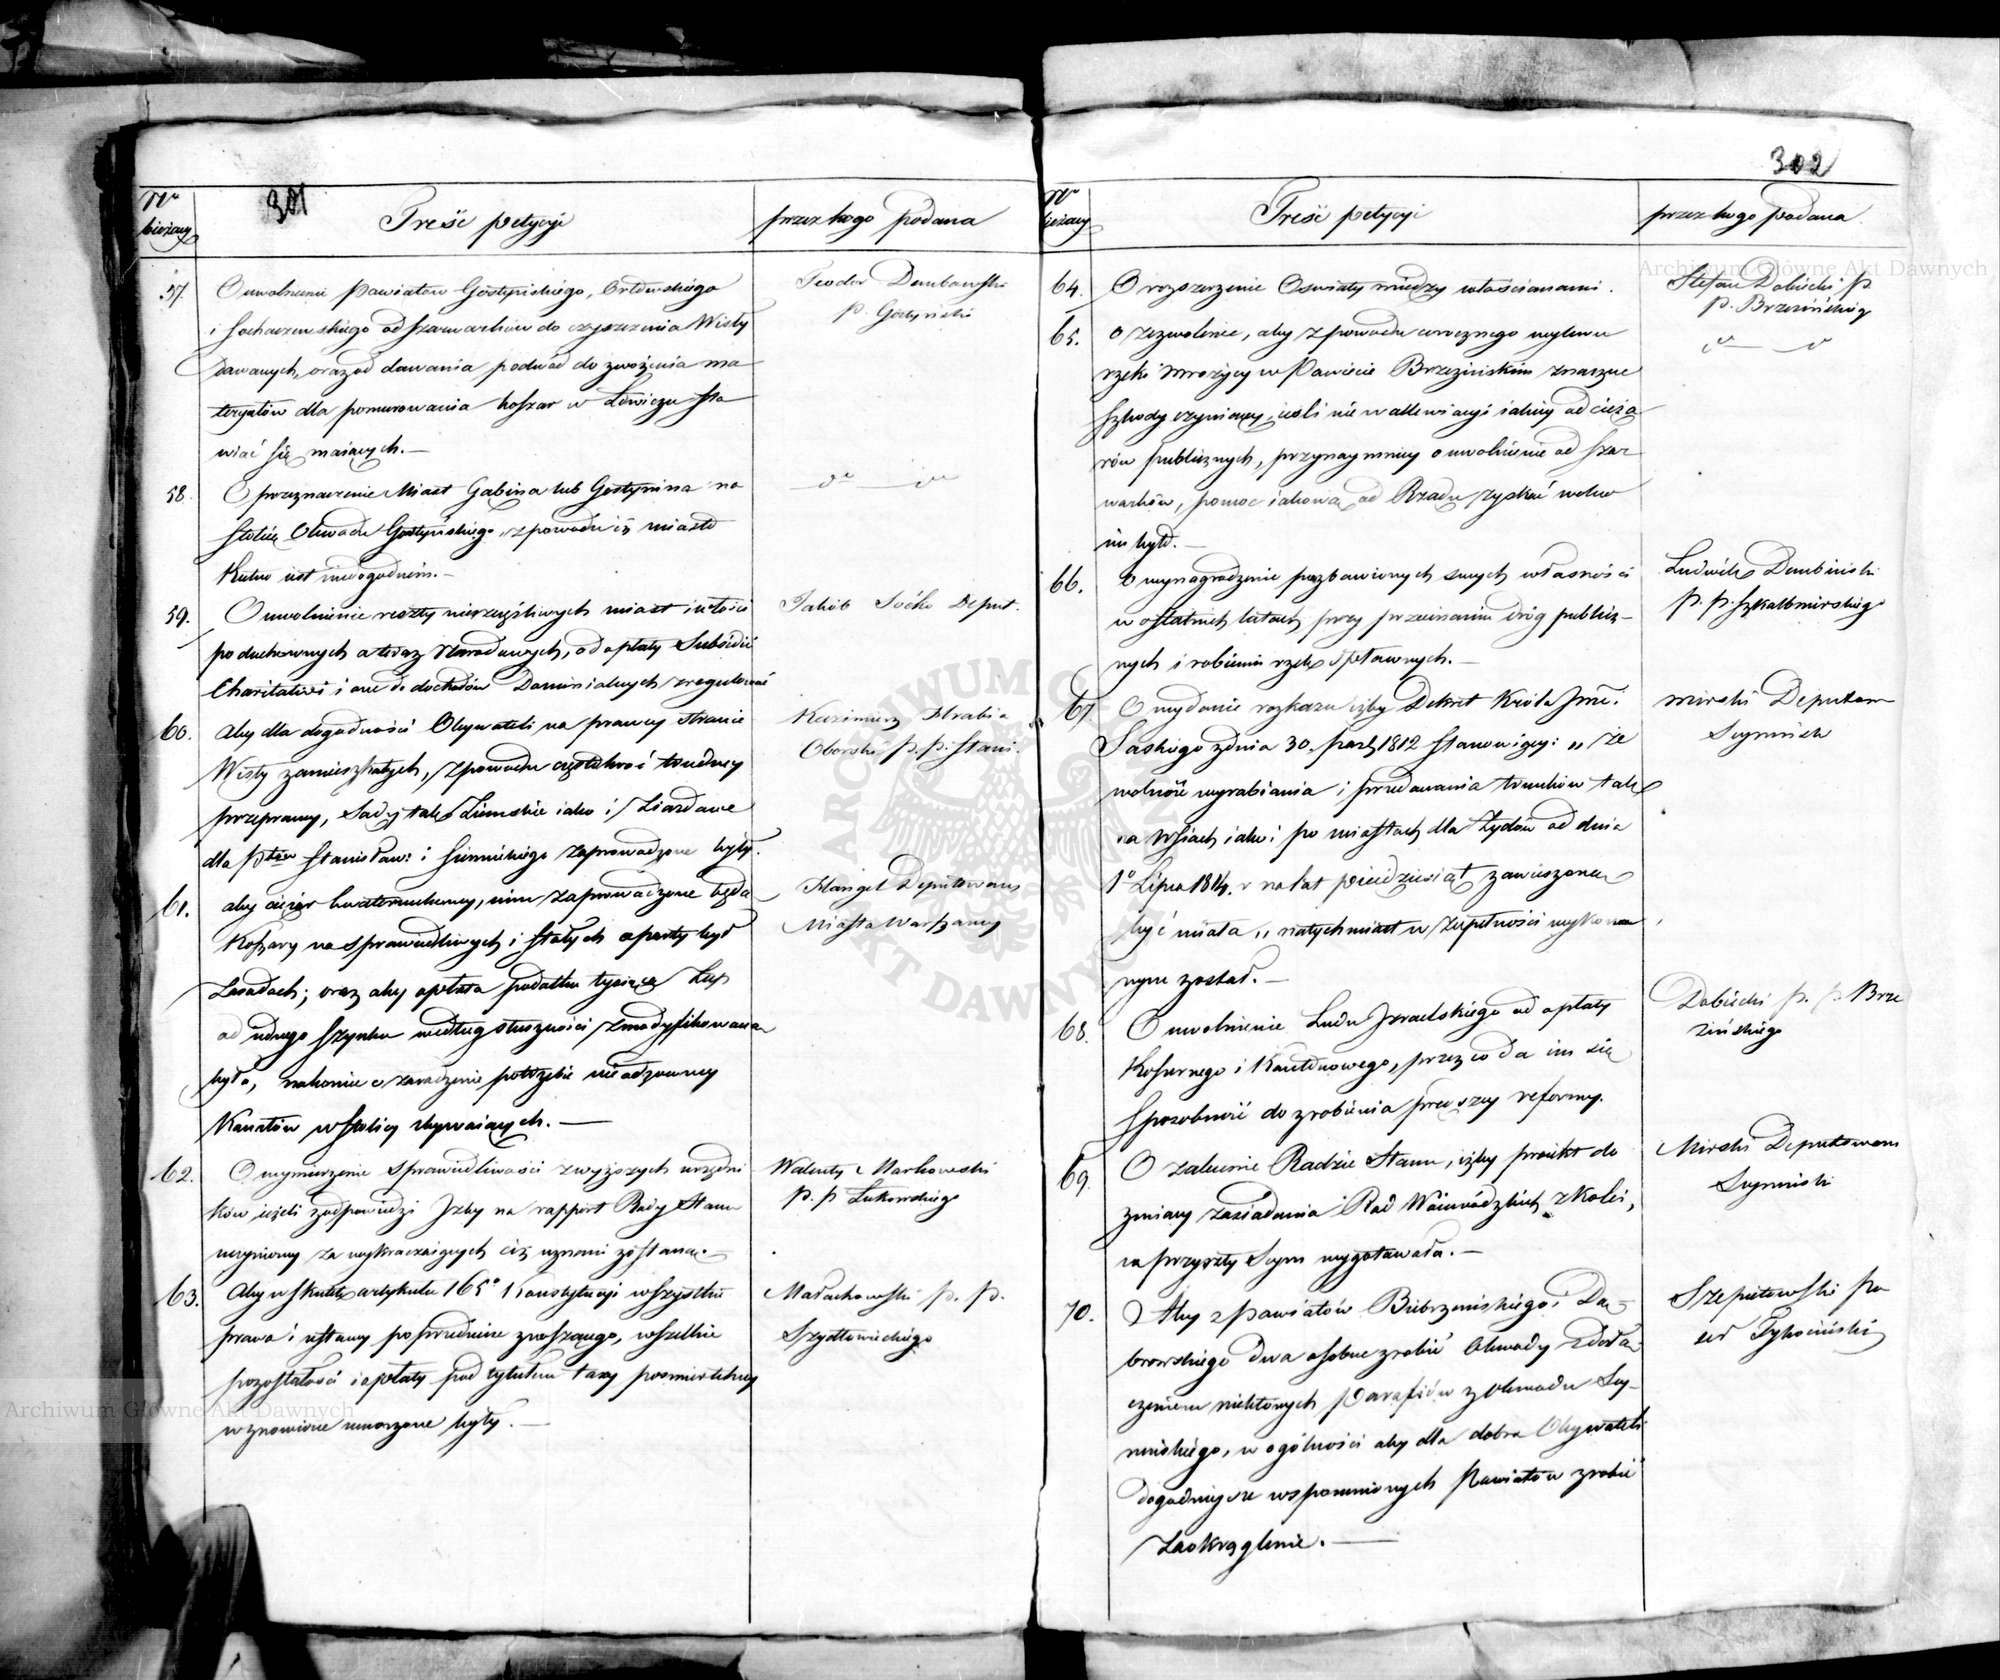 301
Nr bieżący
Treść petycyi
przez kogo podana
57.
Uwolnienie Powiatów Gostyńskiego, Orłowskiego
i Sochaczewskiego od szarwarków do czyszczenia Wisły
dawanych, oraz od dawania podwód do zwożenia ma
teryałów dla pomurowania koszar w Łowiczu sta
wiać się maiących. —
Teodor Dembowski
P. Gostyński
58.
O przeznaczenie Miast Gąbina lub Gostynina na
stolicę Obwodu Gostyńskiego, z powodu iż miasto
Kutno iest niedogodném. —
dto — dto
59.
O uwolnienie reszty nieszczęśliwych miast i włości
po duchownych a teraz Narodowych, od opłaty Subsidii
Charitativi i one do dochodów Dominialnych zregulować
Jakób Deput.
60.
Aby dla dogodności Obywateli na prawey stronie
Wisły zamieszkałych, z powodu częstokroć trudney
przeprawy, Sądy tak Ziemskie iako i Ziazdowe
dla pttów Stanisław: i Siennickiego zaprowadzone były.
Kazimierz Hrabia
Oborski P. P. Stani:
61.
aby ciężar kwaterunkowy, nim zaprowadzone będą
Koszary na sprawiedliwych i stałych oparty był
zasadach; oraz aby opłata podatku tysiąca Złp
od iednego szynku według słuszności zmodyfikowana
była, nakoniec o zaradzenie potrzebie nieodzowney
Kanałów w stolicy zbywaiących. —
Hangel Deputowany
Miasta Warszawy
62.
O wymierzenie sprawiedliwości z wyższych urzędni
ków ieżeli z odpowiedzi Izby na rapport Rady Stanu
uczyniony za wykraczaiących iż uznani zostaną. —
Walenty Markowski
P. P. Łukowskiego
63.
Aby w skutek artykułu 165o Konstytucyi wszystkie
prawa i ustawy poprzednicze znoszącego, wszelkie
pozostałości i opłaty pod tytułem taxy pośmiertelney
wznowione umorzone były. —
Małachowski P. P.
Szydłowieckiego
302
Nr bieżący
Treść petycyi
przez kogo podana
64.
O rozszerzenie Oświaty między włościanami.
Stefan Dobiecki P
P. Brzezińskiego
65.
o zezwolenie, aby z powodu corocznego wylewu
rzeki Mrożycy w Powiecie Brzezińskim znaczne
szkody czyniącey, ieśli nie w allewiacyi iakiey od cięża
rów publicznych, przynaymniey o uwolnienie od szar
warków, pomoc iakową od Rządu zyskać wolno
im było. —
dto — dto
66.
o wynagrodzenie pozbawionych swych własności
w ostatnich latach przy przecinaniu dróg publicz-
nych i robieniu rzek spławnych. —
Ludwik Dembiński
P. P. Szkalbmirskiego
67
O wydanie rozkazu iżby Dekret Króla Jmci.
Saskiego z dnia 30. paźd 1812 stanowiący: „ że
wolność wyrabiania i przedawania trunków tak
na wsiach iako i po miastach dla Żydów od dnia
1o Lipca 1814. r na lat piećdziesiąt zawieszona
być miała „ natychmiast w zupełności wykona
nym został. —
Mirski Deputow
Seyneński
68.
O uwolnienie Ludu Izraelskiego od opłaty
Koszernego i Konsensowego, przez co da im się
sposobność do zrobienia prędszey reformy.
Dobiecki P. P. Brze
zińskiego
69.
O zalecenie Radzie Stanu, iżby proiekt do
zmiany zasiadania Rad Woiewódzkich z Kolei,
na przyszły Seym wygotowała. —
Mirski Deputowany
Seyneński
70.
Aby z Powiatów Biebrzańskiego i Dą
browskiego dwa osobne zrobić Obwody z dołą
czeniem niektórych Parafiów z Obwodu Sey-
neńskiego, w ogólności aby dla dobra Obywateli
dogodnieysze wspomnionych Powiatów zrobić
zaokrąglenie. —
Szepietowski Po
seł Tykociński
Archiwum Główne Akt Dawnych
Archiwum Główne Akt Dawnych